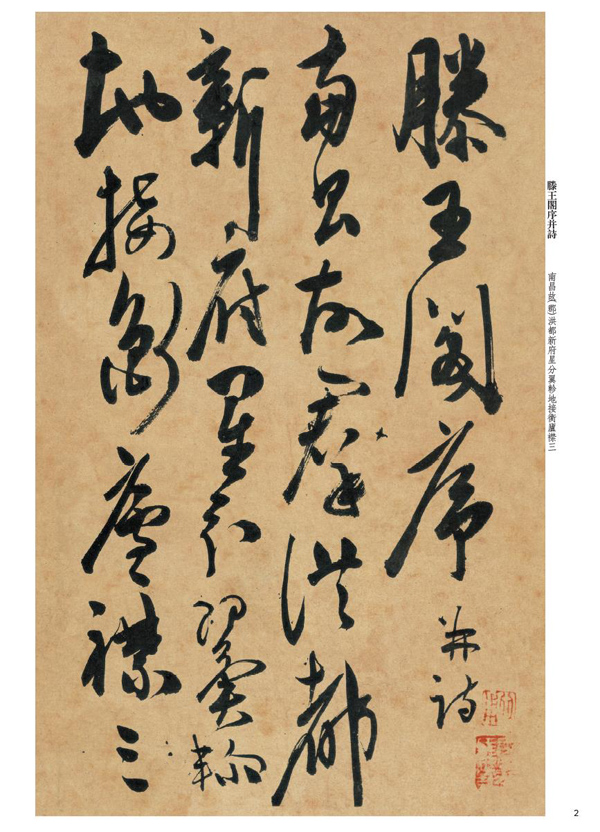 滕王閣序并詩
南昌故羣洪都
新府星分翼軫
地接衡廬襟三
滕王閣序并詩
南昌故(郡)洪都新府星分翼軫地接衡廬襟三
2